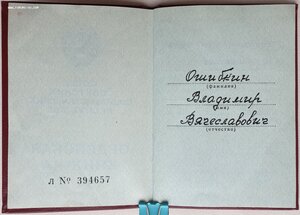 Л № 394657
Ошибкин
(фамилия)
Владимир
(имя)
Вячеславович
(отчество)